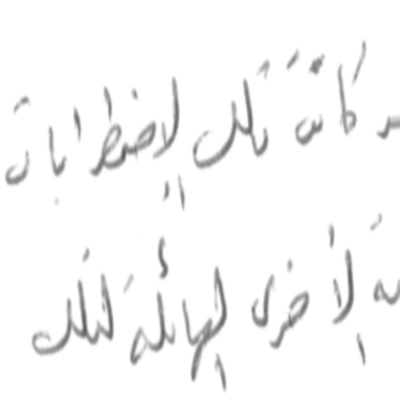 كانت تلك الاضطرابات
الأخرى الهائلة لتلك